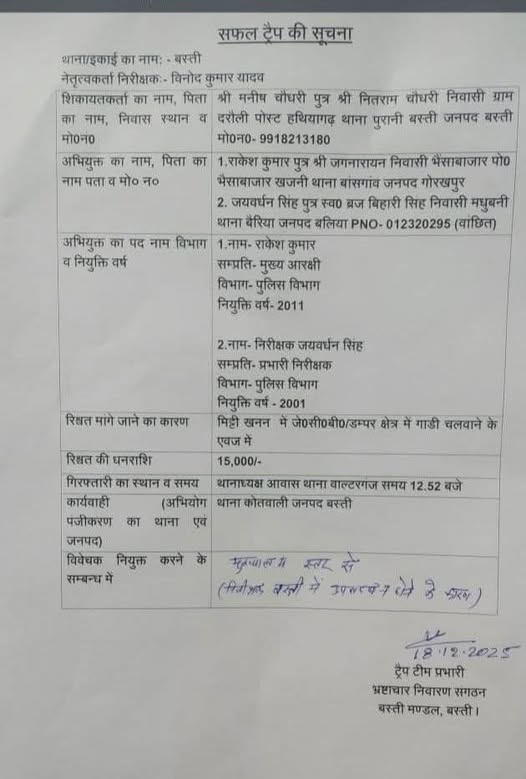 सफल ट्रैप की सूचना
थाना/इकाई का नाम: - बस्ती
नेतृत्वकर्ता निरीक्षक:- विनोद कुमार यादव
शिकायतकर्ता का नाम, पिता का नाम, निवास स्थान व मो0न0
श्री मनीष चौधरी पुत्र श्री नितराम चौधरी निवासी ग्राम
दरौली पोस्ट हथियागढ़ थाना पुरानी बस्ती जनपद बस्ती
मो0न0- 9918213180
अभियुक्त का नाम, पिता का नाम पता व मो० न०
1.राकेश कुमार पुत्र श्री जगनारायन निवासी भैसाबाजार पो0
भैसाबाजार खजनी थाना बांसगांव जनपद गोरखपुर
2. जयवर्धन सिंह पुत्र स्व0 ब्रज बिहारी सिंह निवासी मधुबनी
थाना बैरिया जनपद बलिया PNO- 012320295 (वांछित)
अभियुक्त का पद नाम विभाग व नियुक्ति वर्ष
1.नाम- राकेश कुमार
सम्प्रति- मुख्य आरक्षी
विभाग- पुलिस विभाग
नियुक्ति वर्ष- 2011
2.नाम- निरीक्षक जयवर्धन सिंह
सम्प्रति- प्रभारी निरीक्षक
विभाग- पुलिस विभाग
नियुक्ति वर्ष - 2001
रिश्वत मांगे जाने का कारण
मिट्टी खनन में जे0सी0बी0/डम्पर क्षेत्र में गाडी चलवाने के
एवज में
रिश्वत की धनराशि
15,000/-
गिरफ्तारी का स्थान व समय
थानाध्यक्ष आवास थाना वाल्टरगंज समय 12.52 बजे
कार्यवाही (अभियोग पंजीकरण का थाना एवं जनपद)
थाना कोतवाली जनपद बस्ती
विवेचक नियुक्त करने के सम्बन्ध में
मुख्यालय स्तर से
बस्ती में होने के कारण)
18.12.2025
ट्रैप टीम प्रभारी
भ्रष्टाचार निवारण संगठन
बस्ती मण्डल, बस्ती।